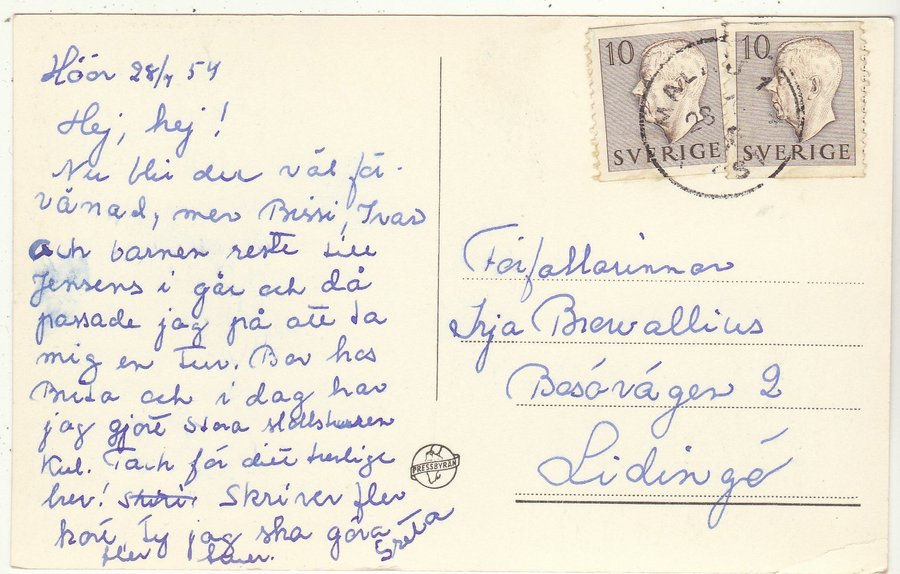 Höör 28/7 54
Hej, hej!
Nu bli du väl för-
vånad, men Bissi, Ivar
och barnen reste till
Jensens i går och då
passade jag på att ta
mig en tur. Bor hos
Brita och i dag har
jag gjort stora
Kul. Tack för ditt trevliga
brev! Skriver fler
kort. Ty jag ska göra
fler turer.
Greta
PRESSBYRÅN
10
SVERIGE
10
SVERIGE
MALMÖ 1
28
Författarinnan
Irja Browallius
Bosövägen 2
Lidingö